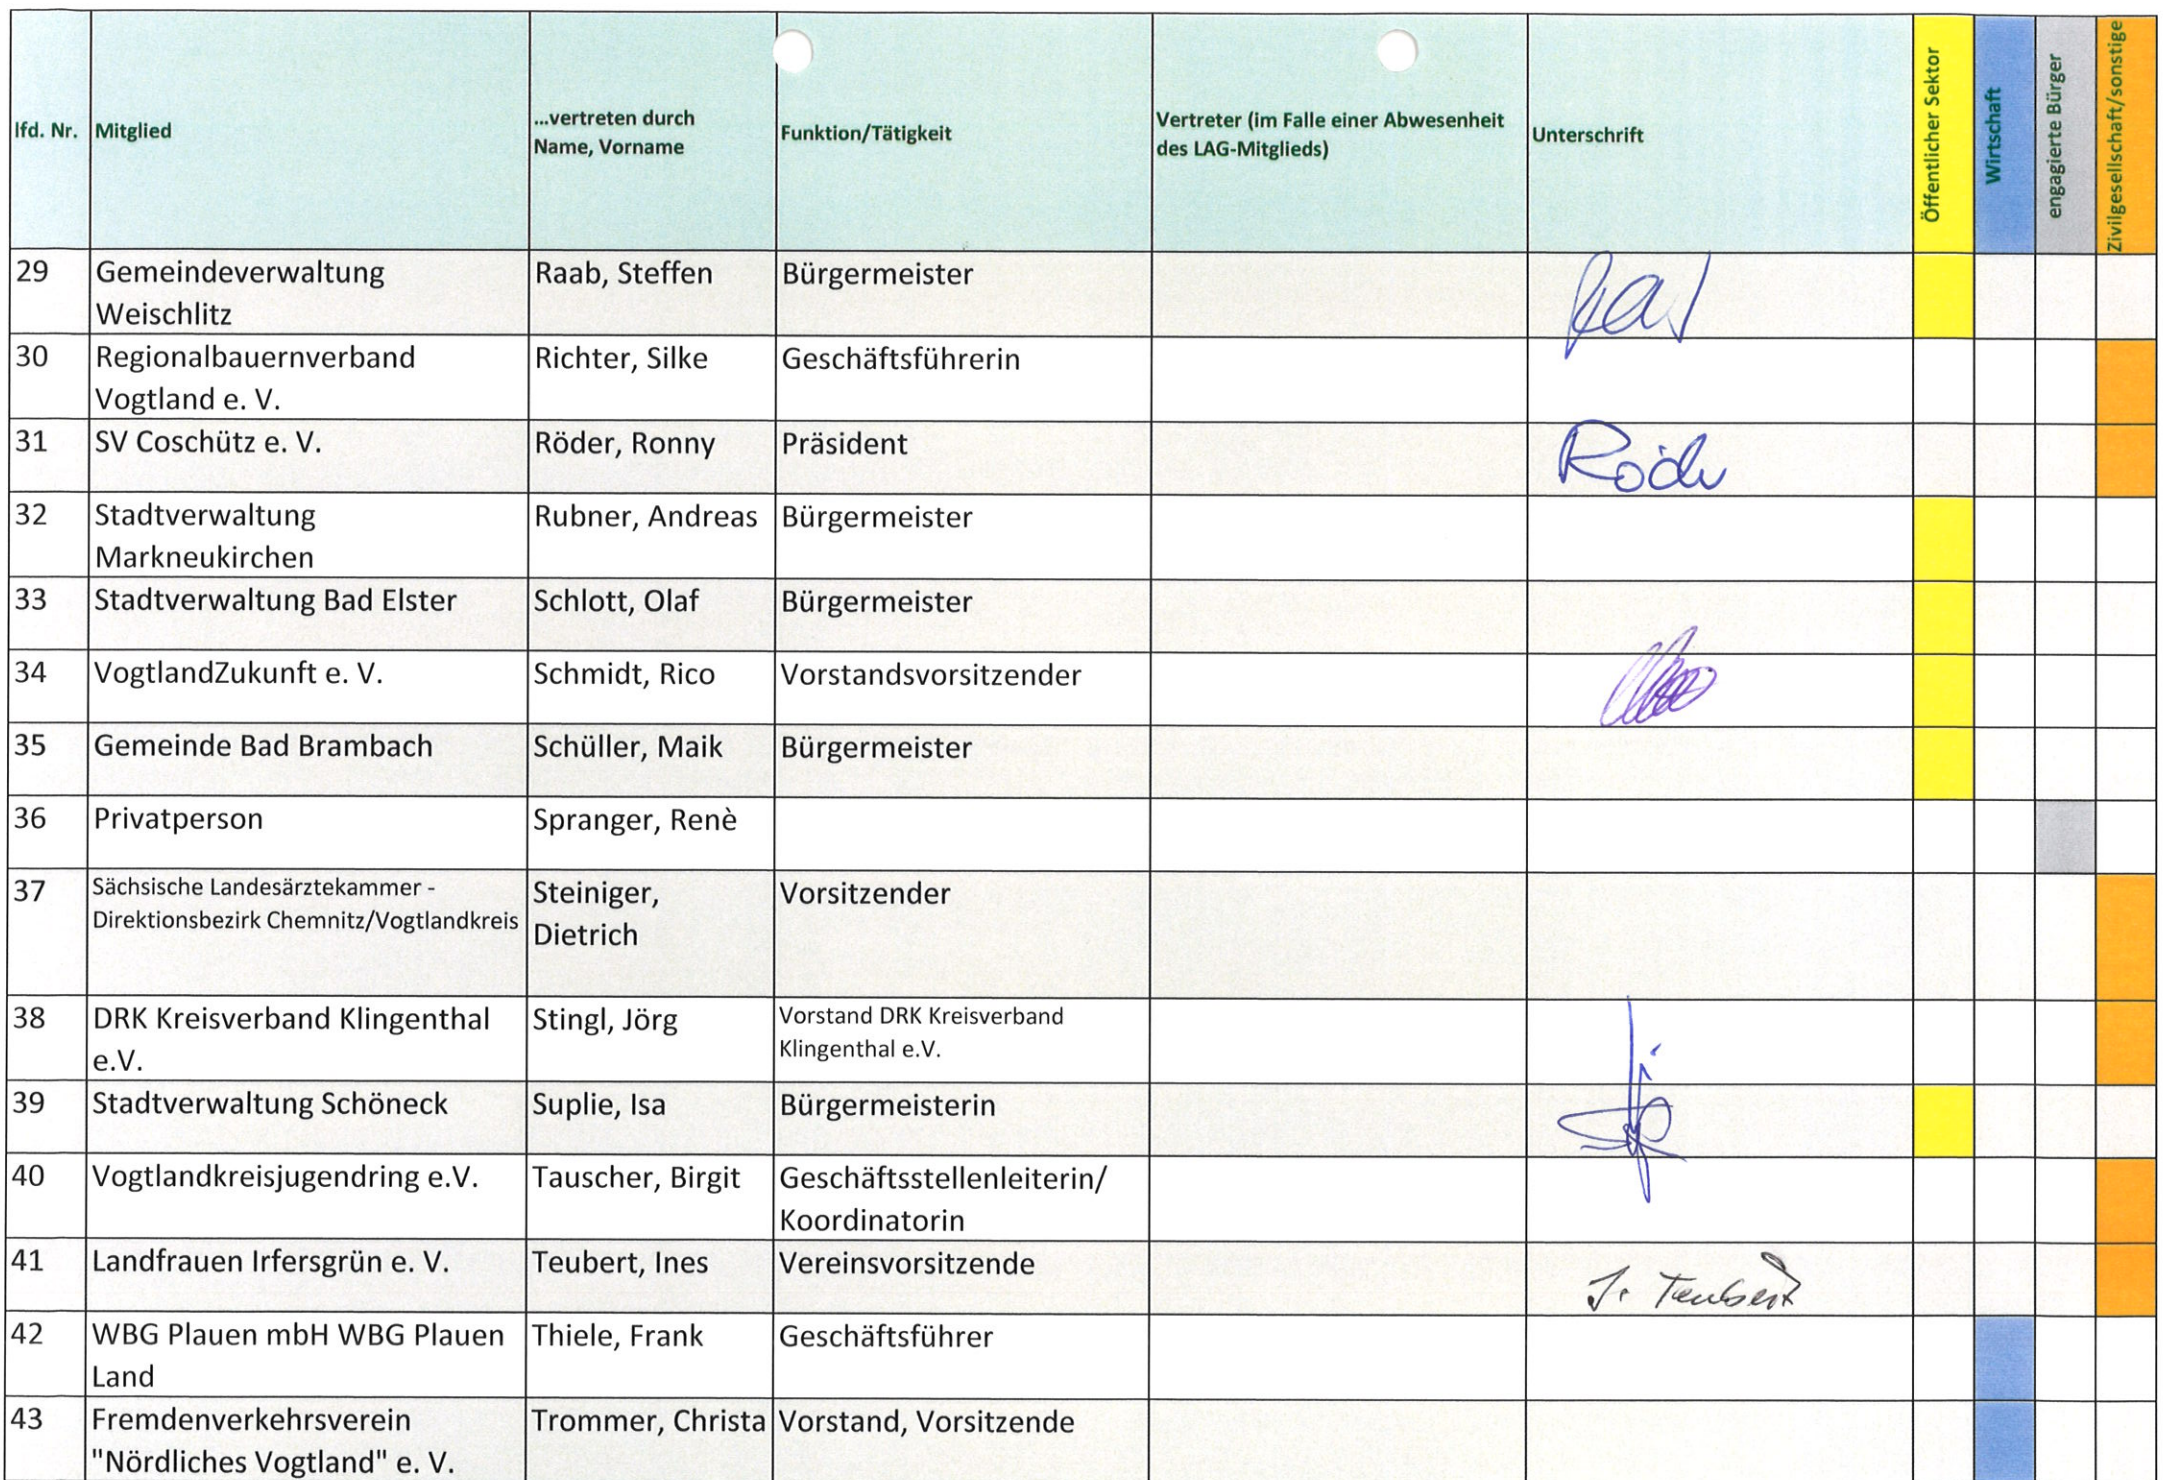 lfd. Nr. Mitglied ...vertreten durch Name, Vorname Funktion/Tätigkeit Vertreter (im Falle einer Abwesenheit des LAG-Mitglieds) Unterschrift Öffentlicher Sektor Wirtschaft engagierte Bürger Zivilgesellschaft/sonstige
29 Gemeindeverwaltung Raab, Steffen Bürgermeister
Weischlitz
30 Regionalbauernverband Richter, Silke Geschäftsführerin
Vogtland e. V.
31 SV Coschütz e. V. Röder, Ronny Präsident
32 Stadtverwaltung Rubner, Andreas Bürgermeister
Markneukirchen
33 Stadtverwaltung Bad Elster Schlott, Olaf Bürgermeister
34 VogtlandZukunft e. V. Schmidt, Rico Vorstandsvorsitzender
35 Gemeinde Bad Brambach Schüller, Maik Bürgermeister
36 Privatperson Spranger, Renè
37 Sächsische Landesärztekammer - Steiniger, Vorsitzender
Direktionsbezirk Chemnitz/Vogtlandkreis Dietrich
38 DRK Kreisverband Klingenthal Stingl, Jörg Vorstand DRK Kreisverband
e.V. Klingenthal e.V.
39 Stadtverwaltung Schöneck Suplie, Isa Bürgermeisterin
40 Vogtlandkreisjugendring e.V. Tauscher, Birgit Geschäftsstellenleiterin/
Koordinatorin
41 Landfrauen Irfersgrün e. V. Teubert, Ines Vereinsvorsitzende I. Teubert
42 WBG Plauen mbH WBG Plauen Thiele, Frank Geschäftsführer
Land
43 Fremdenverkehrsverein Trommer, Christa Vorstand, Vorsitzende
"Nördliches Vogtland" e. V.